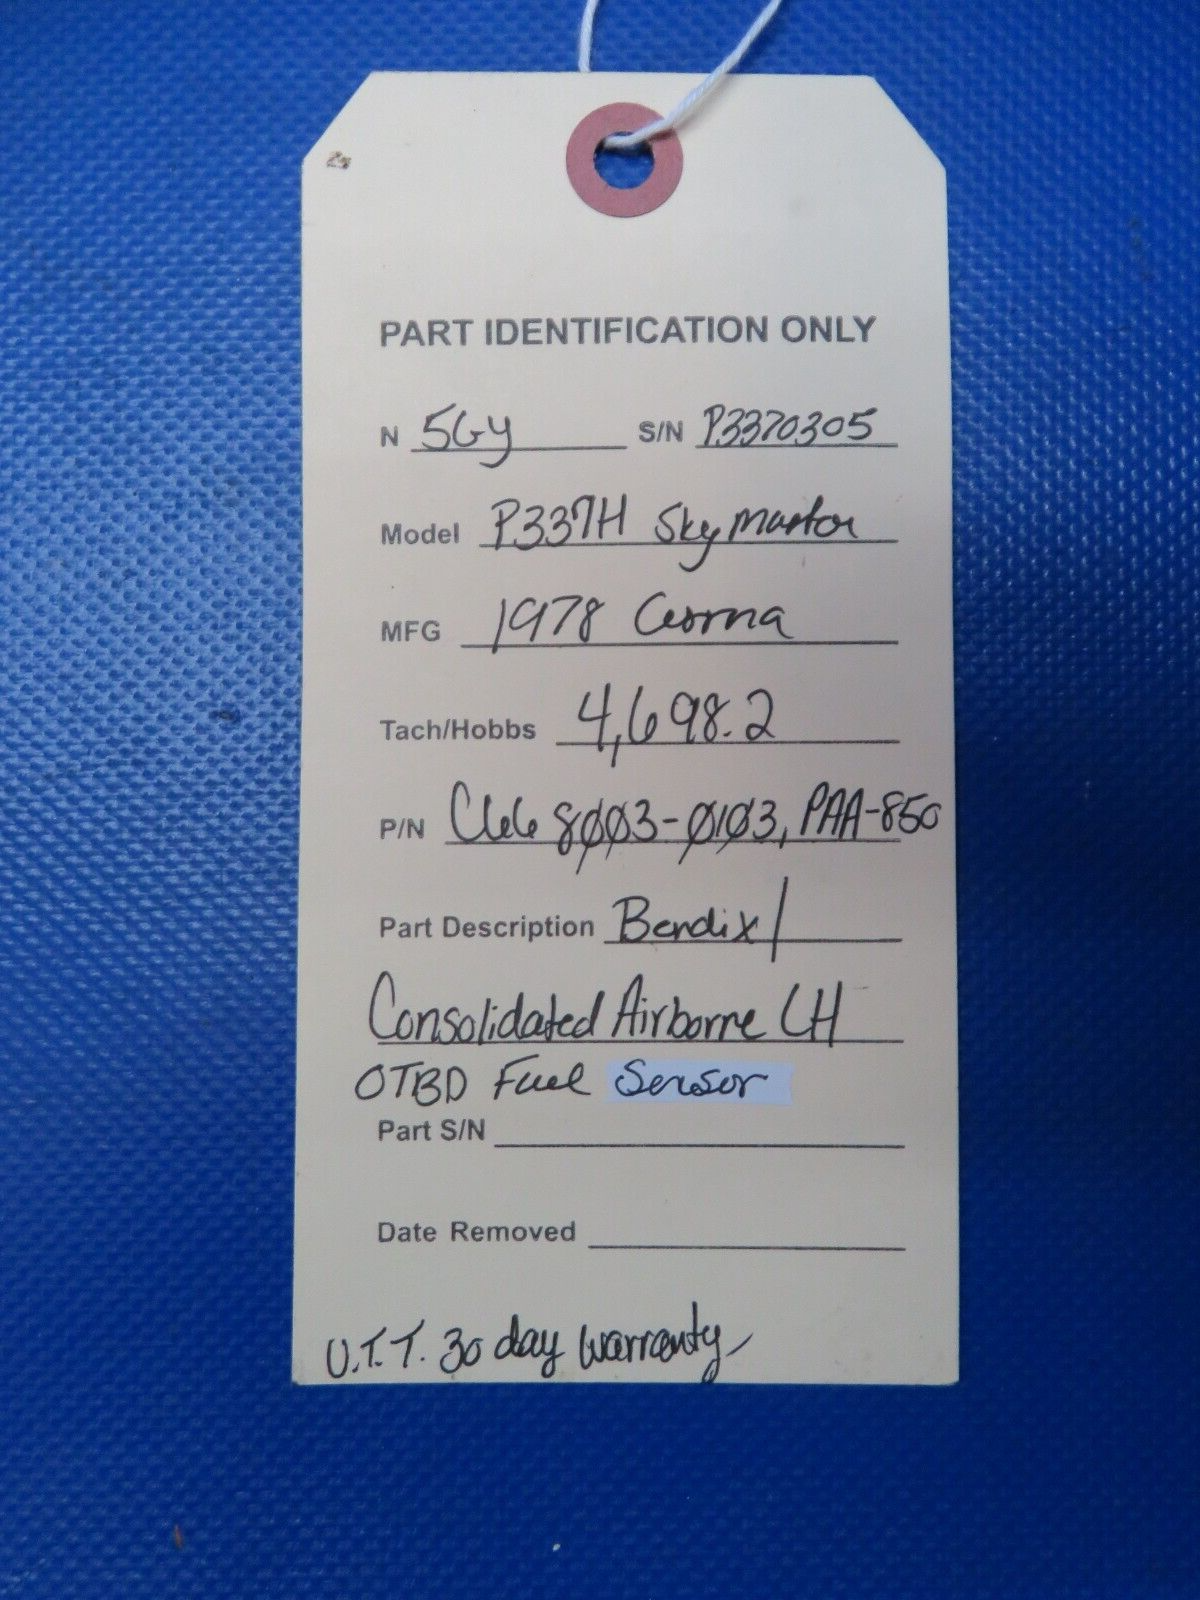 PART IDENTIFICATION ONLY
N 5GY S/N P3370305
Model P337H Skymaster
MFG 1978 Cessna
Tach/Hobbs 4,698.2
P/N C668003-0103, PAA-850
Part Description Bendix/
Consolidated Airborne LH
OTBD Fuel Sensor
Part S/N
Date Removed
U.T.T. 30 day warranty